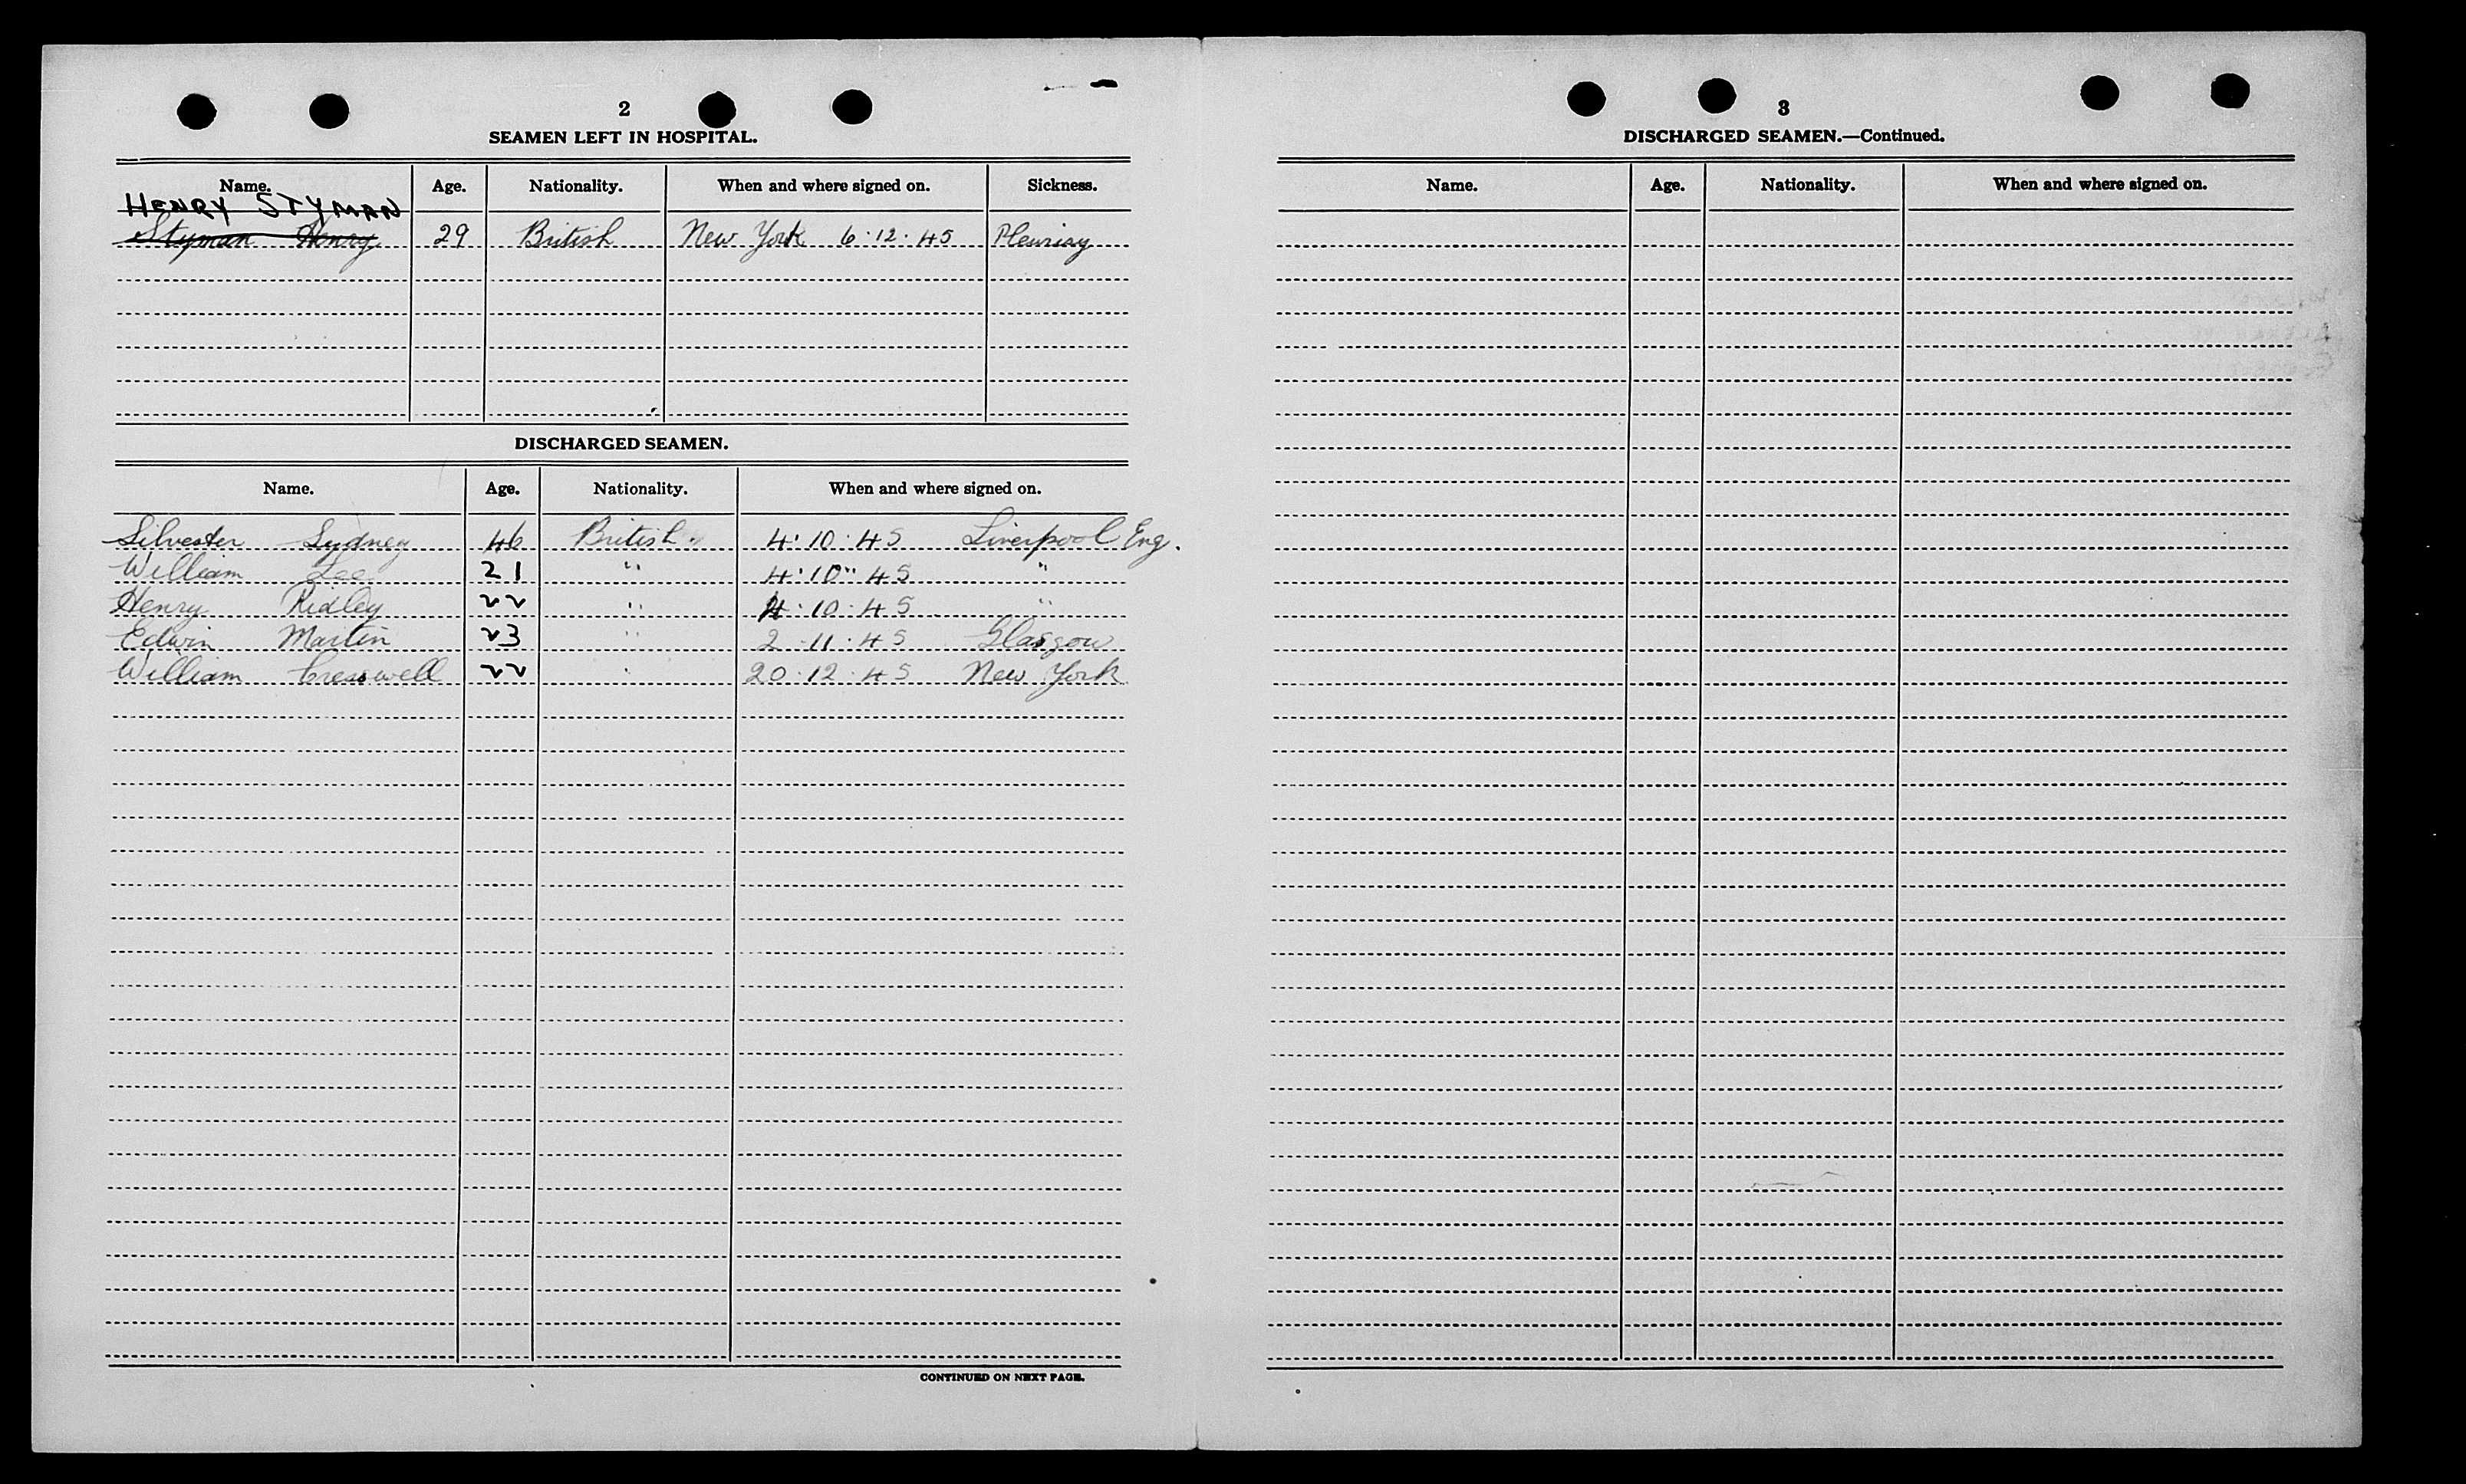 2
SEAMEN LEFT IN HOSPITAL.
Name. Age. Nationality. When and where signed on. Sickness.
HENRY STYMAN
Styman Henry 29 British New York 6·12·45 Pleurisy
DISCHARGED SEAMEN.
Name. Age. Nationality. When and where signed on.
Silvester Sydney 46 British. 4·10·45 Liverpool Eng.
William Lee 21 " 4·10·45 "
Henry Ridley 22 " 4·10·45 "
Edwin Martin 23 " 2·11·45 Glasgow
William Cresswell 22 " 20·12·45 New York
CONTINUED ON NEXT PAGE.
3
DISCHARGED SEAMEN.—Continued.
Name. Age. Nationality. When and where signed on.